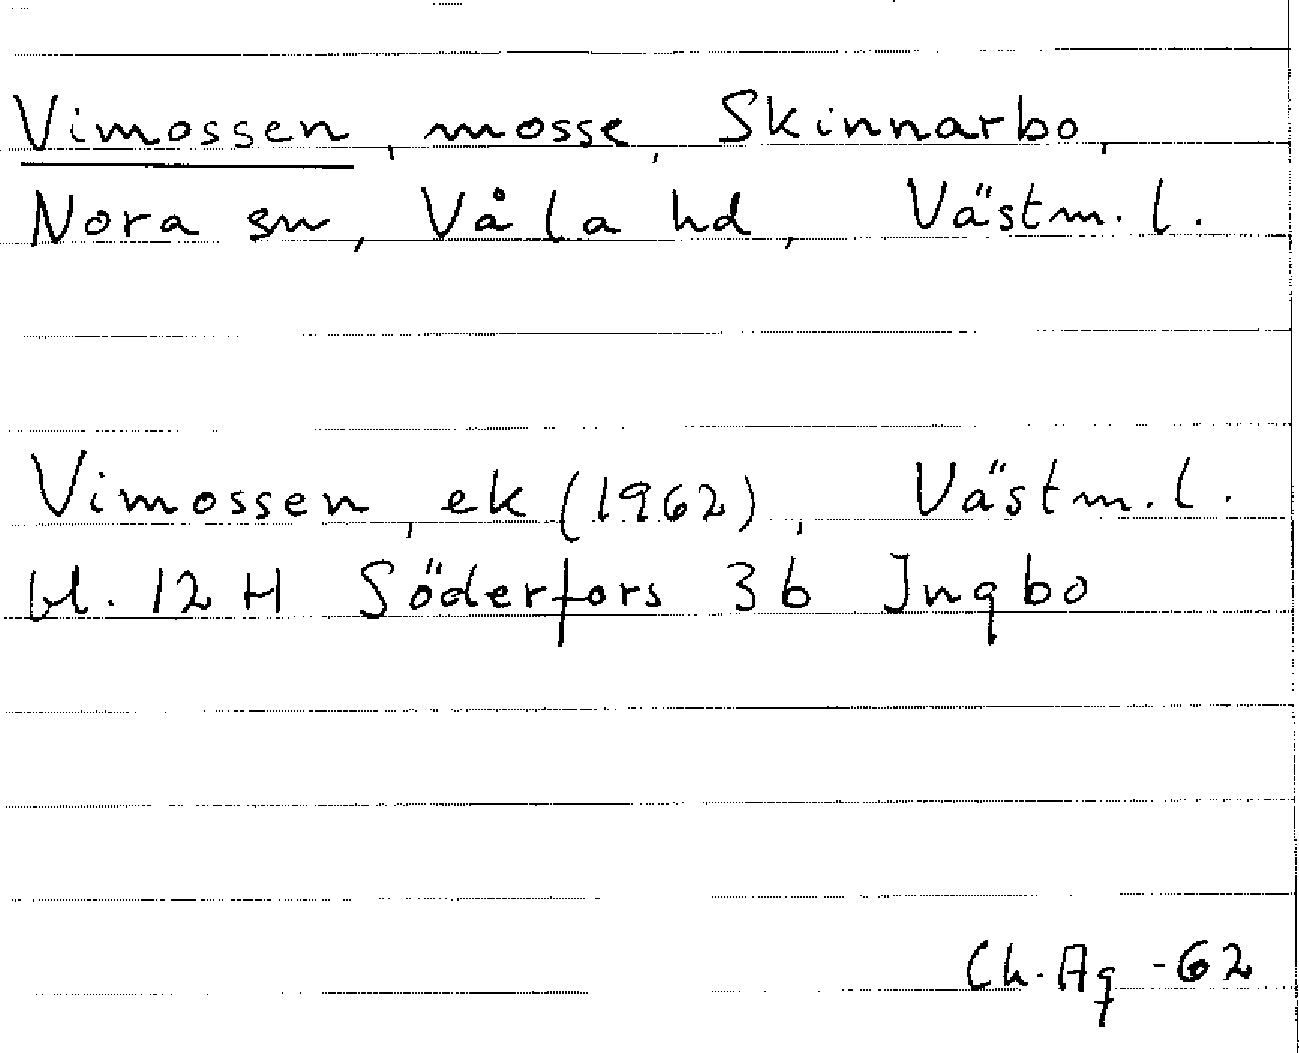 Vimossen, mosse, Skinnarbo,
Nora sn, Våla hd, Västm. l.
Vimossen, ek (1962), Västm. l.
bl. 12 H Söderfors 3b Ingbo
Ch. Ag -62